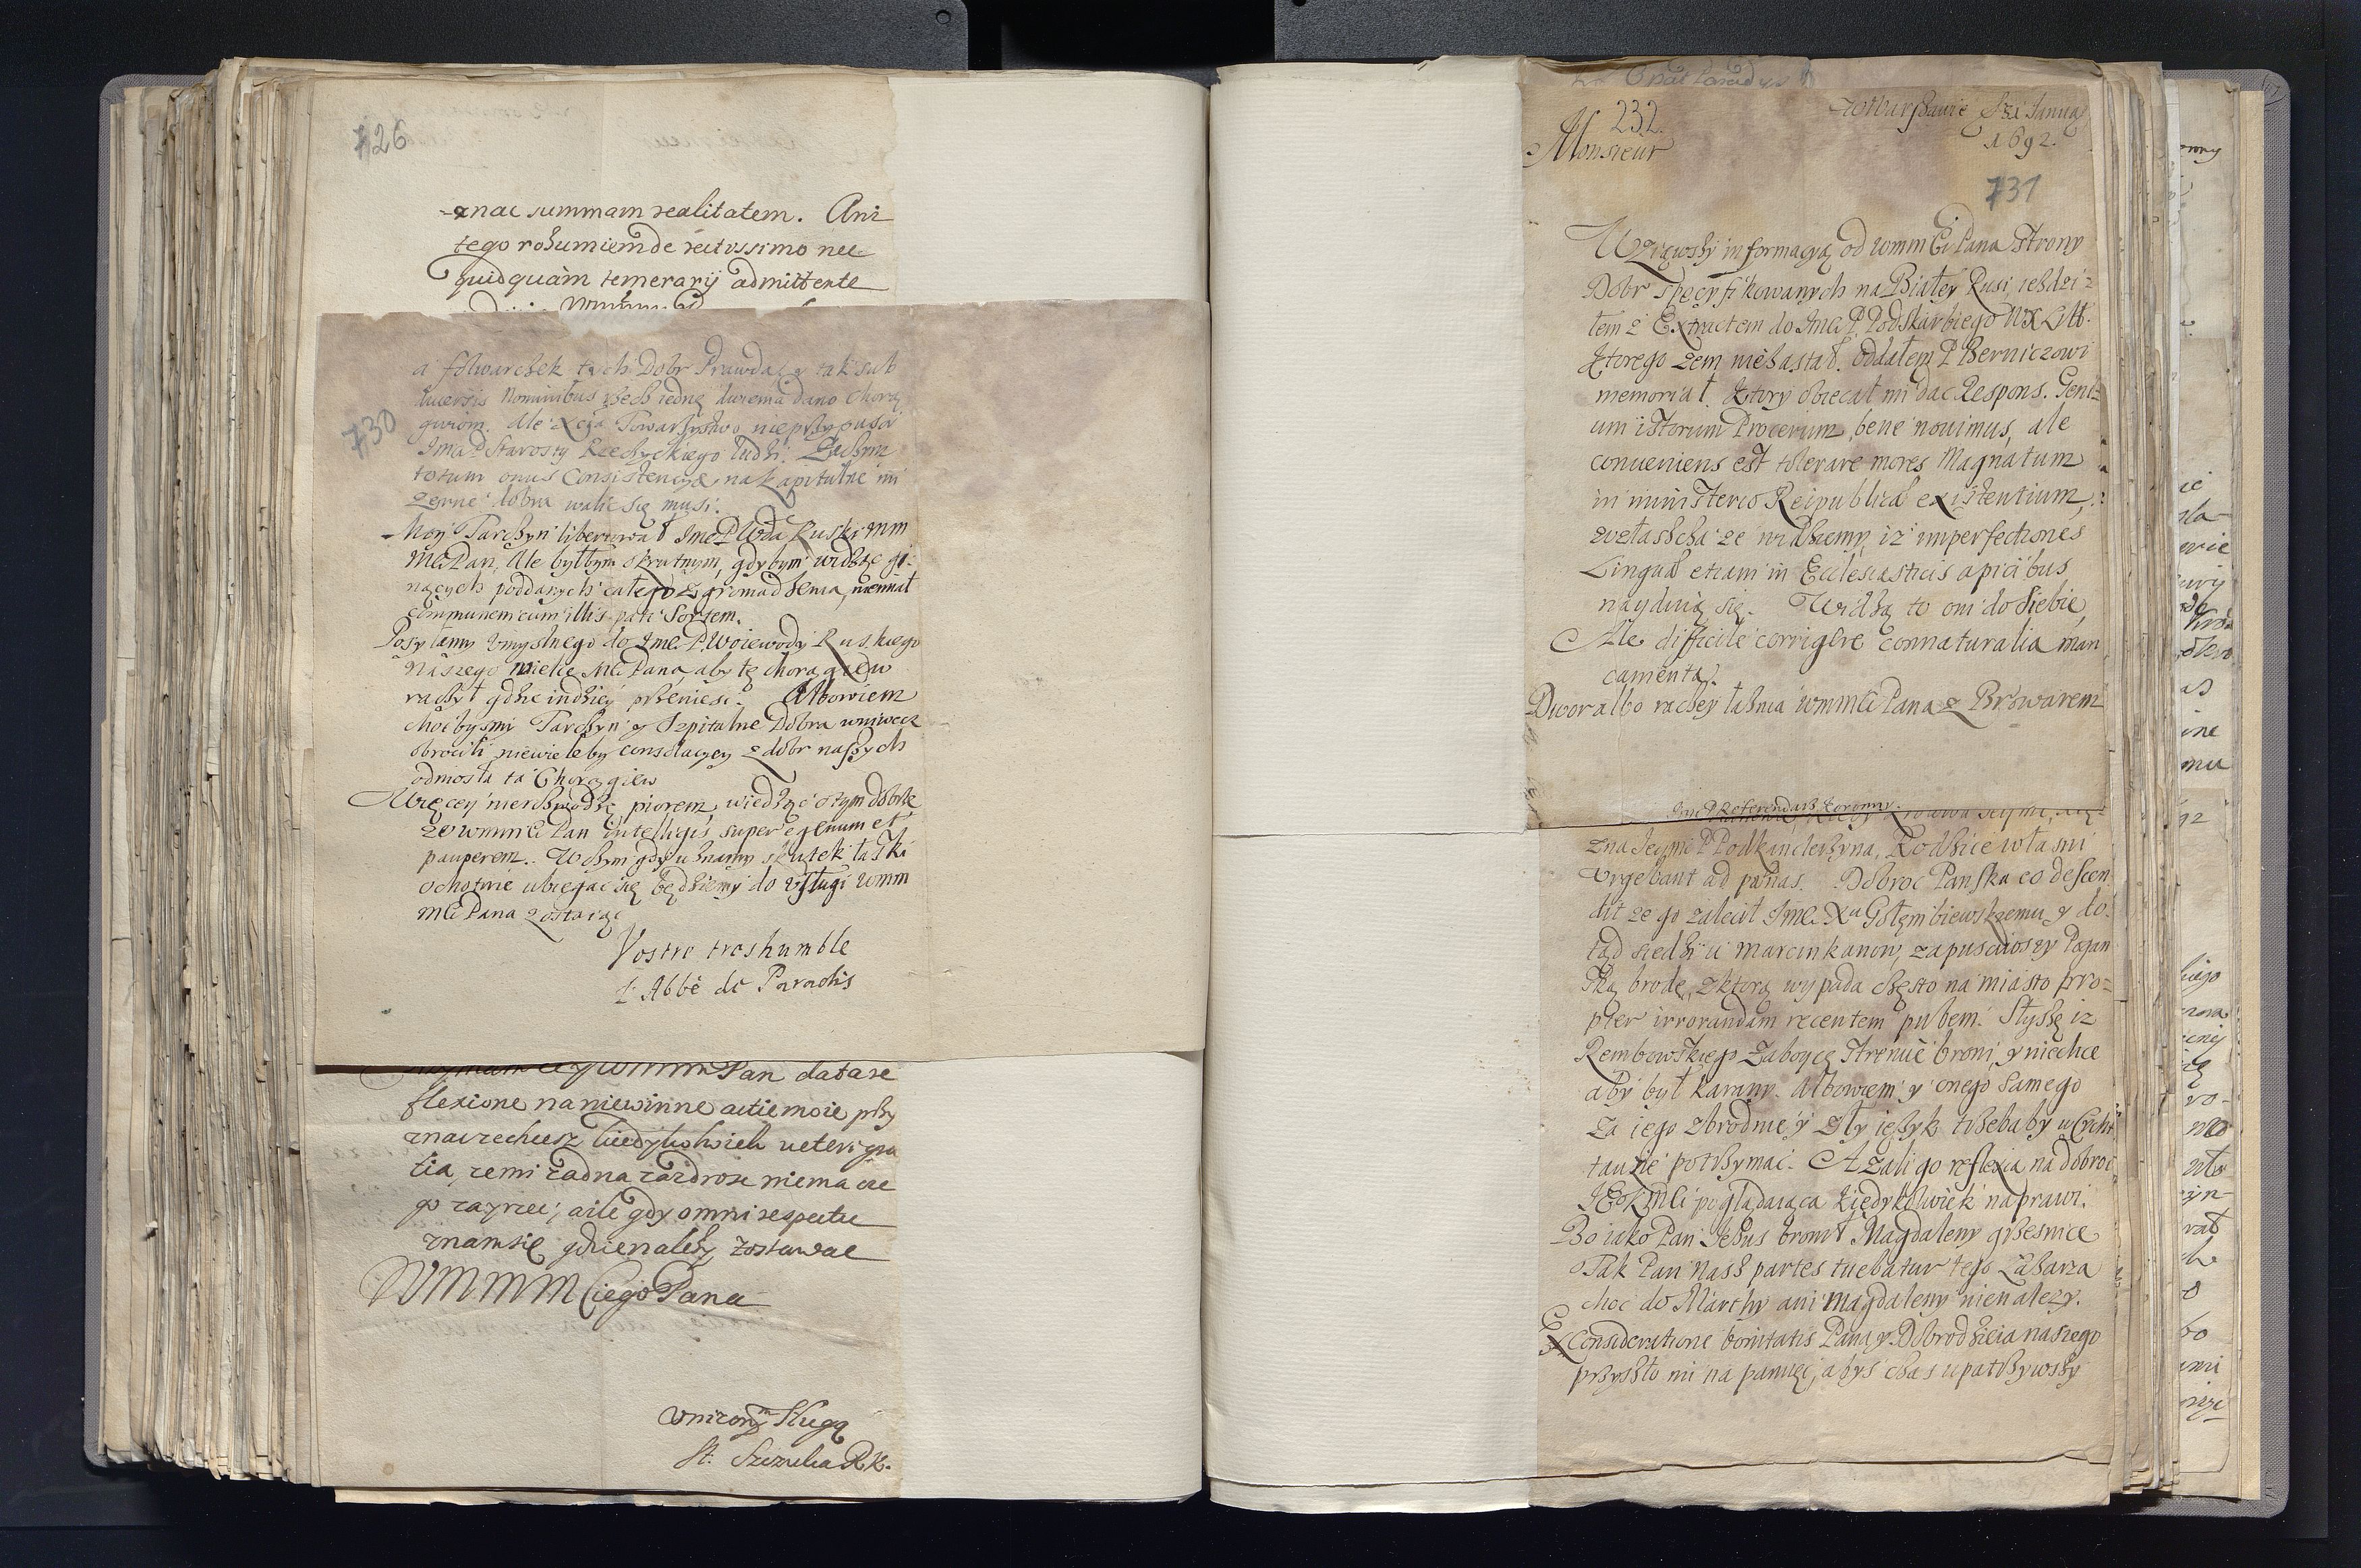 726
-znac summam realitatem. Ani
tego rozumiem de rectissimo nec
quidquam temerarij admittente
730
a folwarczek tych Dobr Prawda, y tak sub
diversis Nominibus rzecz iednę dwiema dano Chorą
gwiom. Ale Xcia Towarzystwo nie przypusci
Ime P Starosty Rzeczyckiego ludzi. Zaczym
totum onus Consistencyi na kapitulne mi
zerne dobra walic się musi.
Moy Tarczyn libertował Jmo P Wda Ruski mm
Mci Pan, Ale byłbym okrutnym, gdybym widząc gi-
nących poddanych całego zgromadzenia, niemiał
communem cum illis pati Sortem.
Posyłamy umyslnego do Jme P. Woiewody Ruskiego
Naszego wielce Mci Pana, aby tę chorągiew
raczył gdzie indziey przeniesc. Albowiem
choc bysmy Tarczyn y Szpitalne Dobra wniwecz
obrocili, niewiele by consolacyey z dobr naszych
odniosła ta Chorągiew
Więcey nierozwodzę piorem, wiedząc o tym dobrze
ze wmm Ci Pan Intelligis super egenum et
pauperem. W czym gdy uznamy skutek łaski
ochotnie ubiegac się będziemy do usługi wmm
Mci Pana zostaiąc
Vostre treshumble
L'Abbé de Paradis
Pan data re
flexione na niewinne actie moie przy
znac zechcesz kiedyżkolwiek veteri gra
tia, ze mi żadna zazdrosc niema cze
go zayrzec, a ile gdy omni respectu
znam się gdzie należy zostawac
WMMM Ciego Pana
Unizonym Sługą
St. Szczuka R.K.
232.
w Warszawie 1692.
Monsieur
731
Wziąwszy informacyą od wmm Ci Pana strony
Dobr specyfikowanych na Białey Rusi iezdzi-
łem z Extractem do Jme P. Podskarbiego WX Litt.
ktorego zem niezastał. Oddałem P Berniczowi
memoriał, ktory obiecał mi dac Respons. Geni-
um istorum Procerum bene novimus, ale
conveniens est tolerare mores Magnatum
in ministerio Reipublica existentium,
zwłaszcza ze widziemy, iz imperfectiones
Lingua etiam in Ecclesiasticis apicibus
nayduią się. Widzą to oni do siebie,
Ale difficile corrigere connaturalia man
camenta.
Dwor albo raczey łaznia wmm Ci Pana z Browarem
Jme P Referendarz Koronny.
zna Jeymc P Podkanclerzyna, Rodzice własni
urgebant ad panas. Dobroc Panska eo descen
dit ze go zalecił Jme Xu Gołęmbiewskiemu y do
tąd siedzi u Marcinkanow, zapusciwszy Pogan
ską brodę, z ktorą wypada często na miasto pro-
pter irrorandam recentem pubem. Słyszę iz
Rembowskiego Zaboycę strenue broni, y niechce
aby był karany. Albowiem y onego samego
za iego zbrodnie y zły ięzyk trzebaby w Cycha
tauzie potrzymac. A zali go reflexia na dobroc
JEoKMci poglądaiąca kiedyżkolwiek naprawi.
Bo iako Pan Jezus bronił Magdaleny grzesnice
Tak Pan nasz partes tuebatur tego Łazarza
choc do Marthy ani Magdaleny nienalezy.
Ex Consideratione bonitatis Pana y Dobrodzieia naszego
przyszło mi na pamięc, abys czas upatrzywszy